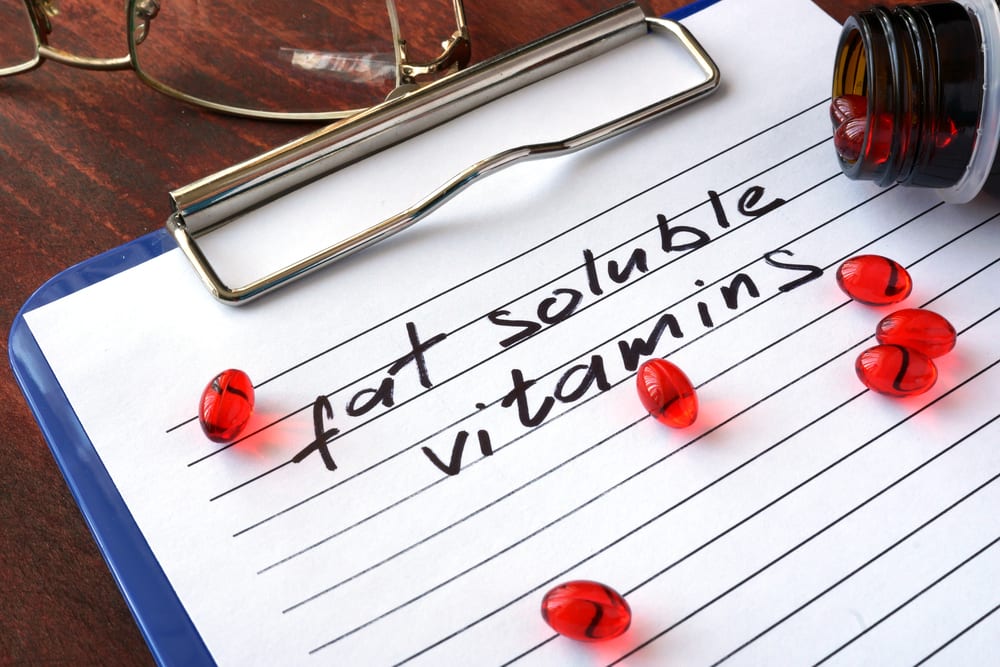 fat soluble
vitamins